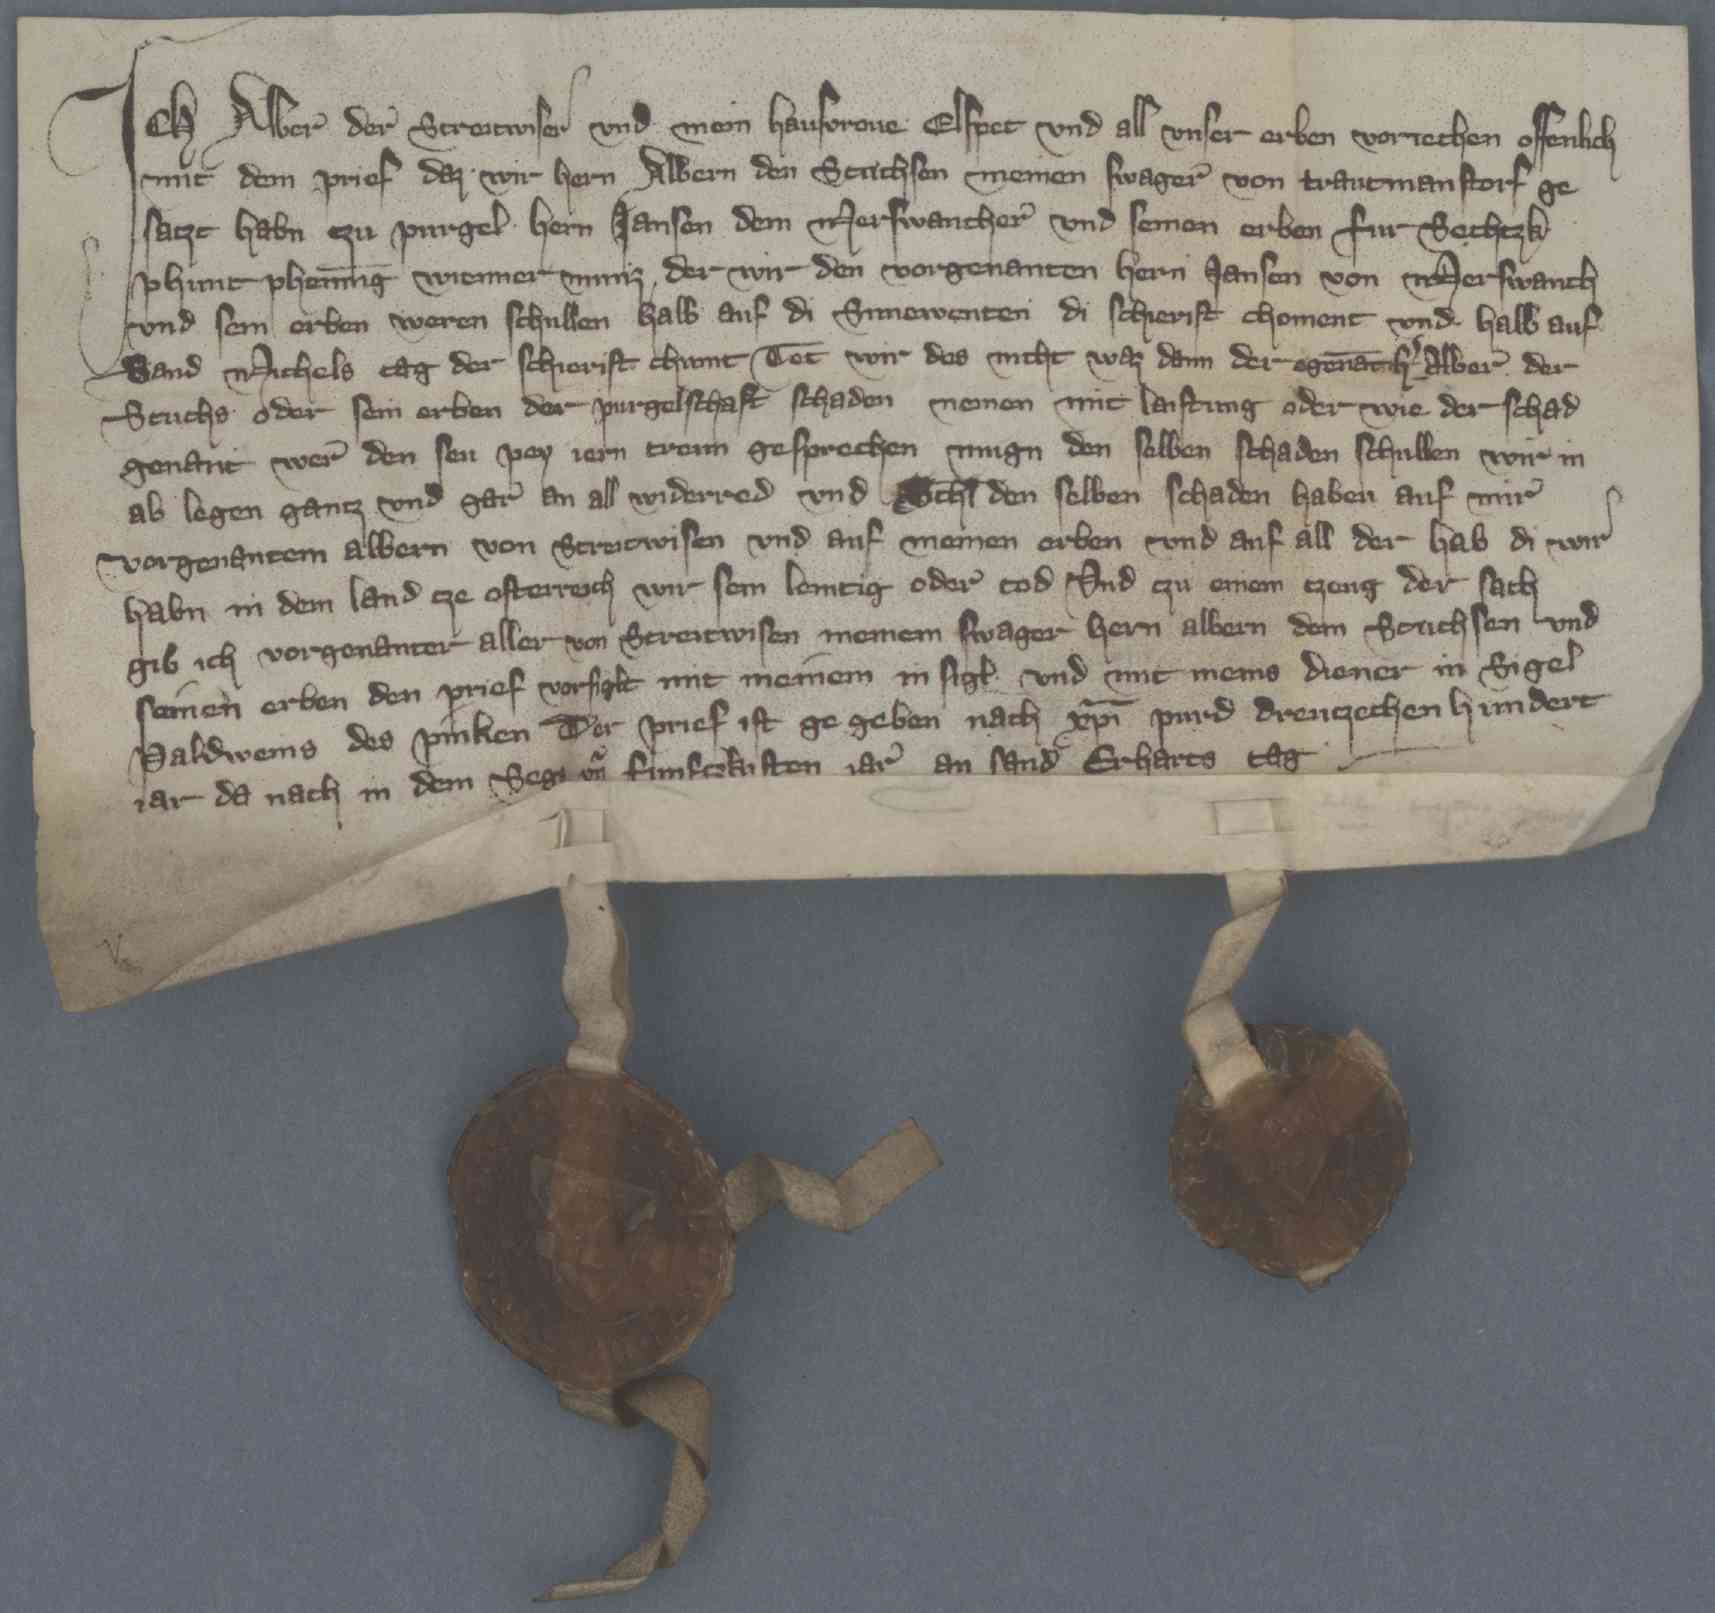 Ich Alber der Streitwiser vnd mein hausvroue Elspet vnd all vnser erben voriechen offenlich
mit dem prief daz wir hern Albern den Stuchsen meinen swager von trautmanstorf ge
satzt habn tzu purgel hern Jansen dem Merswancher vnd seinen erben fur Sechtzk
phunt phenning wienner muniz der wir den vorgenanten hern Jansen von Merswanch
vnd sein erben weren schullen halb auf di Sunewenten di schierist choment vnd halb auf
Sand Michels tag der schierist chumt Tet wir des nicht waz dann der egenāt h Alber der
Stuchs oder sein erben der purgelschaft schaden nemen mit laistung oder wie der schad
genant wer den seu pey iern treun gesprechen mugn den selben schaden schullen wir in
ab legen gantz vnd gar an all widerred vnd den selben schaden haben auf mir
vorgenantem albern von Streitwisen vnd auf meinen erben vnd auf all der hab di wir
habn in dem land tze osterreich wir sein lemtig oder tod Vnd tzu einem tzeug der sach
gib ich vorgenanter alber von Streitwisen meinem swager hern albern dem Stuchsen vnd
seinen erben den prief vorsiglt mit meinem in sigl vnd mit meins diener in Sigel
Paldweins des pinken Der prief ist ge geben nach xpī purd dreutzechen hundert
iar da nach in dem Segs vn̄ funftzkisten iar an sand Erharts tag